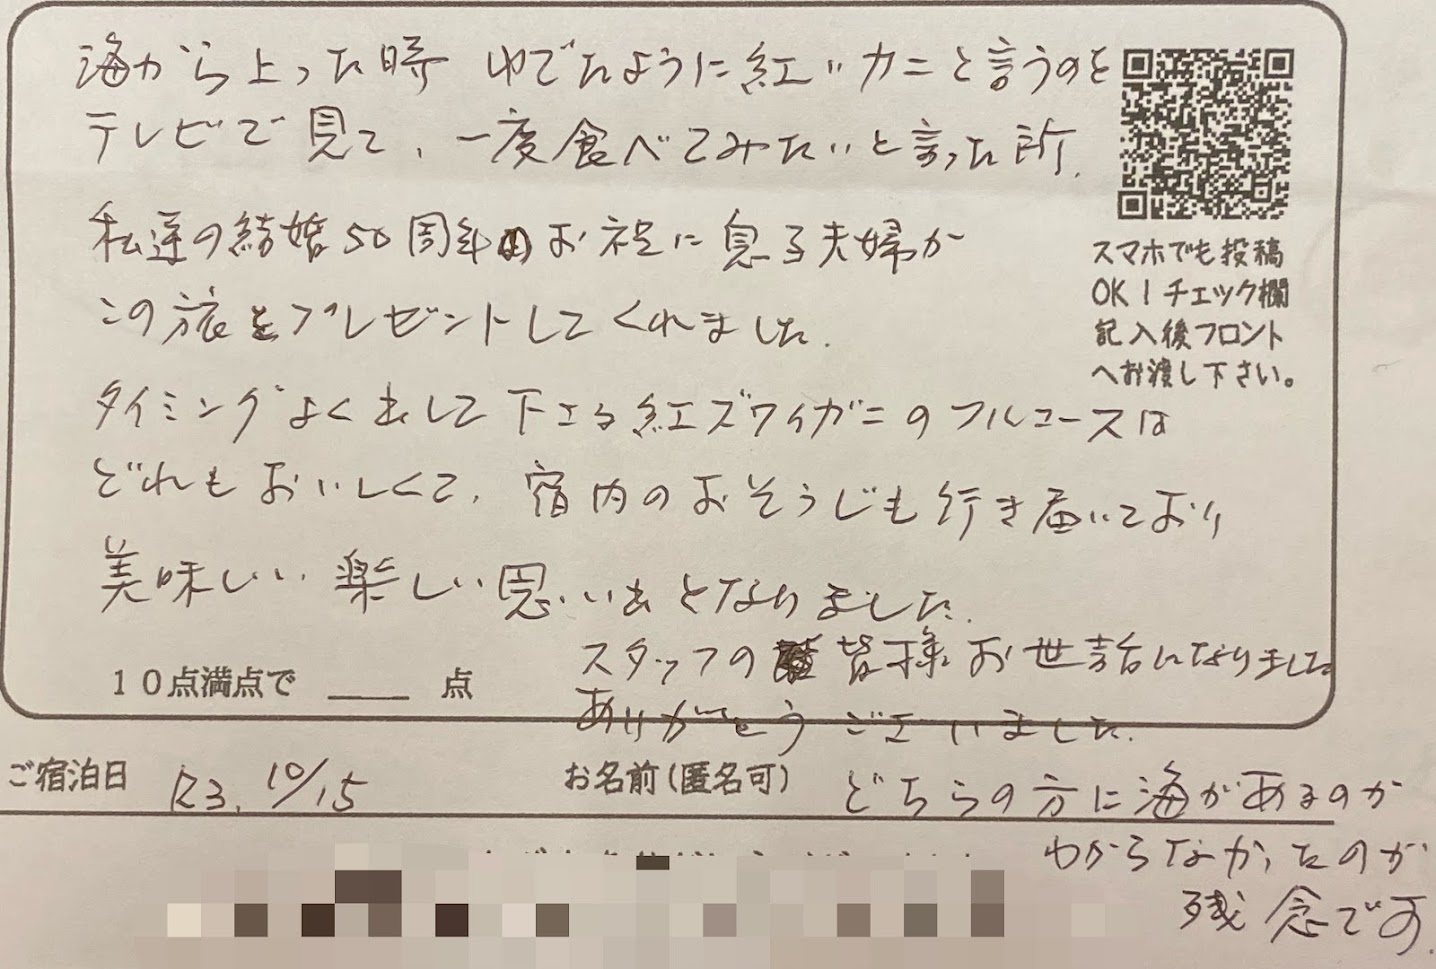 海から上った時 ゆでたように紅いカニと言うのを
テレビで見て、一度食べてみたいと言った所、
私達の結婚50周年のお祝に息子夫婦が
この旅をプレゼントしてくれました。
タイミングよく出して下さる紅ズワイガニのフルコースは
どれもおいしくて、宿内のおそうじも行き届いており
美味しい楽しい思い出となりました。
スタッフの皆様お世話になりました
ありがとうございました。
スマホでも投稿
OK！チェック欄
記入後フロント
へお渡し下さい。
10点満点で ____ 点
ご宿泊日 R3. 10/15
お名前(匿名可)
どちらの方に海があるのか
わからなかったのが
残念です。